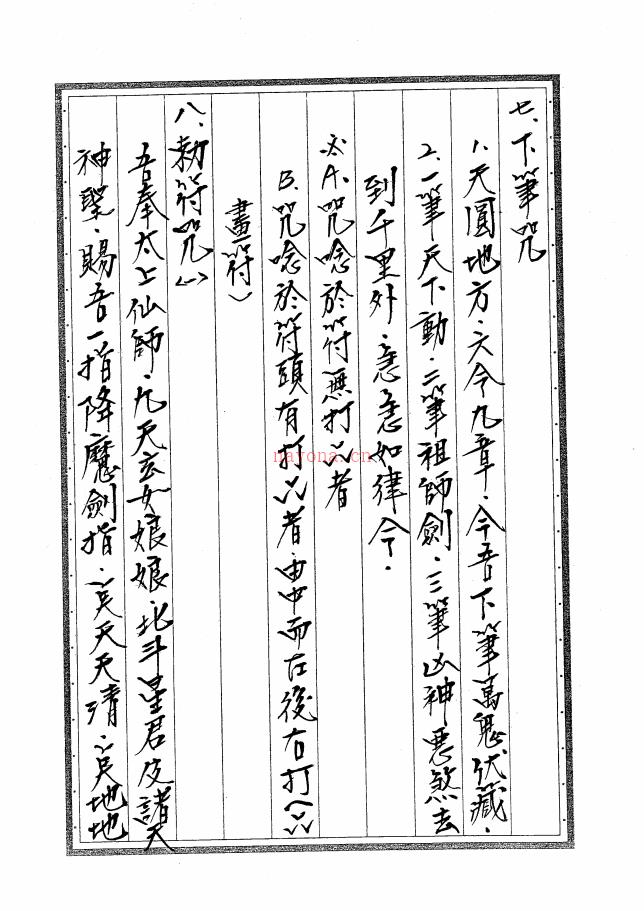 七、下筆咒
1. 天圓地方．六令九章．今吾下筆萬鬼伏藏．
2. 一筆天下動．二筆祖師劍．三筆凶神惡煞去
到千里外．急急如律令．
A. 咒唸於符無打 者
B. 咒唸於符頭有打 者．由中而左後右打（
畫符）
八、勅符咒(一)
吾奉太上仙師．九天玄女娘娘．北斗星君及諸天
神聖．賜吾一指降魔劍指．一 天天清．一 地地
nayona.cn